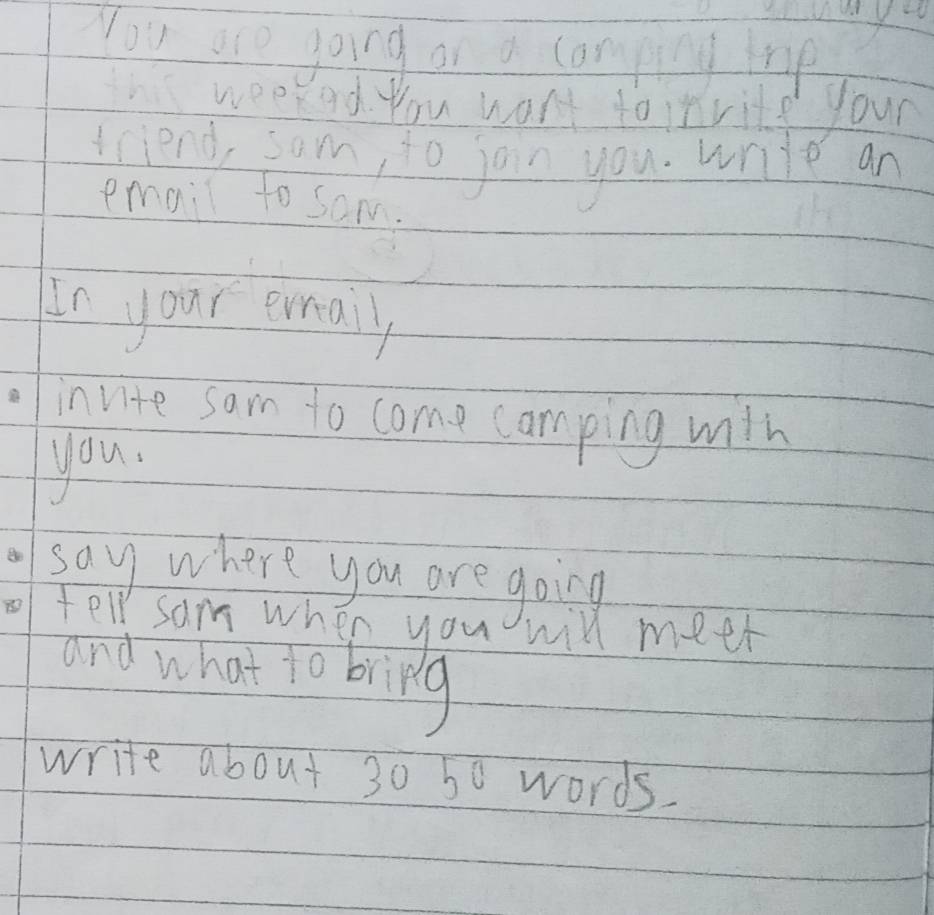 You are going on a camping trip
this weekad. You want to invite your
friend, sam, to join you. write an
email to sam.
In your email,
invite sam to come camping with
you.
say where you are going
tell sam when you will meet
and what to bring
write about 30 50 words.